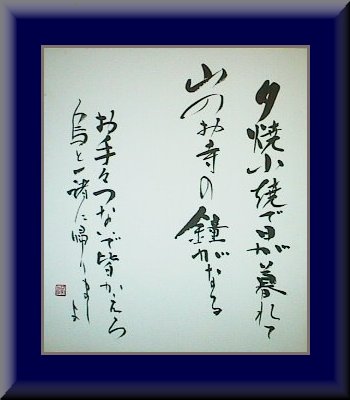 夕焼小焼で日が暮れて
山のお寺の鐘がなる
お手々つないで皆かえろ
烏と一緒に帰りましょ